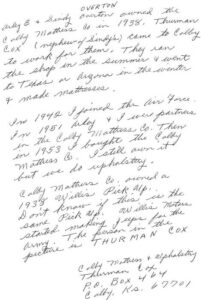 OVERTON
Arley E & Sindy Overton owned the
Colby Mattress Co in 1938. Thurman
Cox (nephew of Sindy's) came to Colby
to work for them. They ran
the shop in the summer & went
to Texas or Arizona in the winter
& made mattresses.
In 1942 I joined the Air Force.
In 1951 Arley & I were partners
in the Colby Mattress Co. Then
in 1953 I bought the Colby
Mattress Co. I still own it
but we do upholstry.
Colby Mattress Co. owned a
1938 Willis Pick Up.
Dont know if this is the
same Pick Up. Willis Motors
stated making Jeeps for the
Army. The person in the
picture is THURMAN COX
Colby Mattress & Upholstry
Thurman Cox
P.O. Box 464
Colby, Ks. 67701